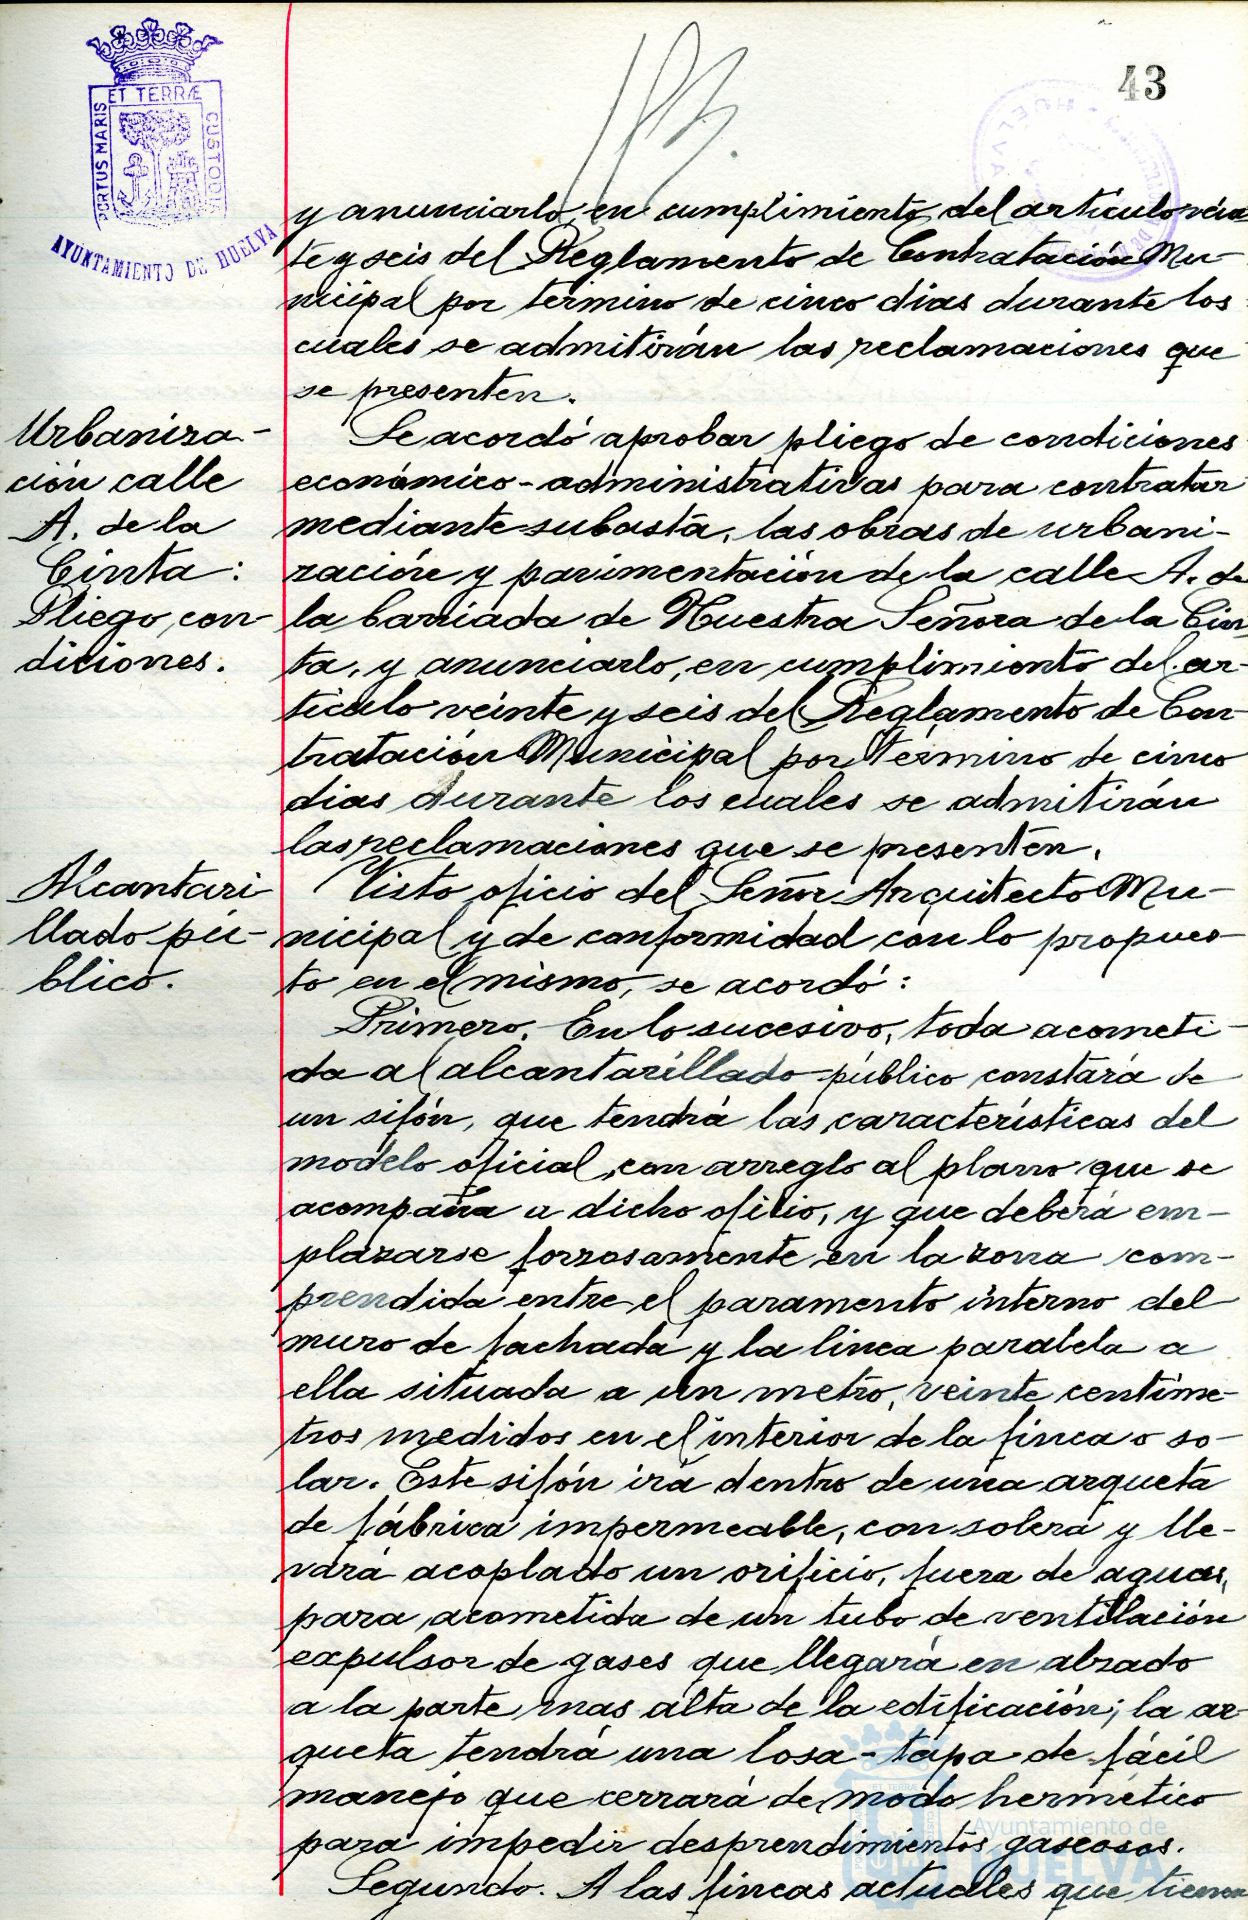 43
ET TERRÆ
PORTUS MARIS
CUSTODIA
AYUNTAMIENTO DE HUELVA
y anunciarlo, en cumplimiento del artículo vein
te y seis del Reglamento de Contratación Mu-
nicipal por término de cinco dias durante los
cuales se admitirán las reclamaciones que
se presenten.
Urbaniza-
ción calle
A. de la
Cinta:
Pliego, con-
diciones.
Se acordó aprobar pliego de condiciones
económico-administrativas para contratar
mediante subasta, las obras de urbani-
zación y pavimentación de la calle A. de
la barriada de Nuestra Señora de la Cin
ta, y anunciarlo, en cumplimiento del ar-
tículo veinte y seis del Reglamento de Con-
tratación Municipal por término de cinco
dias durante los cuales se admitirán
las reclamaciones que se presenten.
Alcantari
llado pú-
blico.
Visto oficio del Señor Arquitecto Mu-
nicipal y de conformidad con lo propues-
to en el mismo, se acordó:
Primero. En lo sucesivo, toda acometi-
da al alcantarillado público constará de
un sifón, que tendrá las características del
modelo oficial, con arreglo al plano que se
acompaña a dicho oficio, y que deberá em-
plazarse forzosamente en la zona com-
prendida entre el paramento interno del
muro de fachada y la linea paralela a
ella situada a un metro, veinte centíme-
tros medidos en el interior de la finca o so-
lar. Este sifón irá dentro de una arqueta
de fábrica impermeable, con solera y lle-
vará acoplado un orificio, fuera de aguas,
para acometida de un tubo de ventilación
expulsor de gases que llegará en alzado
a la parte mas alta de la edificación; la ar-
queta tendrá una losa-tapa de fácil
manejo que cerrará de modo hermético
para impedir desprendimientos gaseosos.
Segundo. A las fincas actuales que tienen
Ayuntamiento de
HUELVA